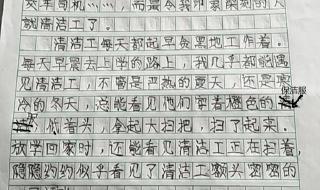 交车司机……，而最令我印象深刻的人
就清洁工了。
清洁工每天都起早贪黑地工作着。
每天早晨去上学的路上，我几乎都能遇
见清洁工，不管是严热的夏天，还是寒
冷的冬天，总能看见他们穿着橙色的
保洁服
，低着头，拿起大扫把，扫了起来。
放学回家时，还能看见清洁工正在扫着，
隐隐约约似乎看见了清洁工额头密密的